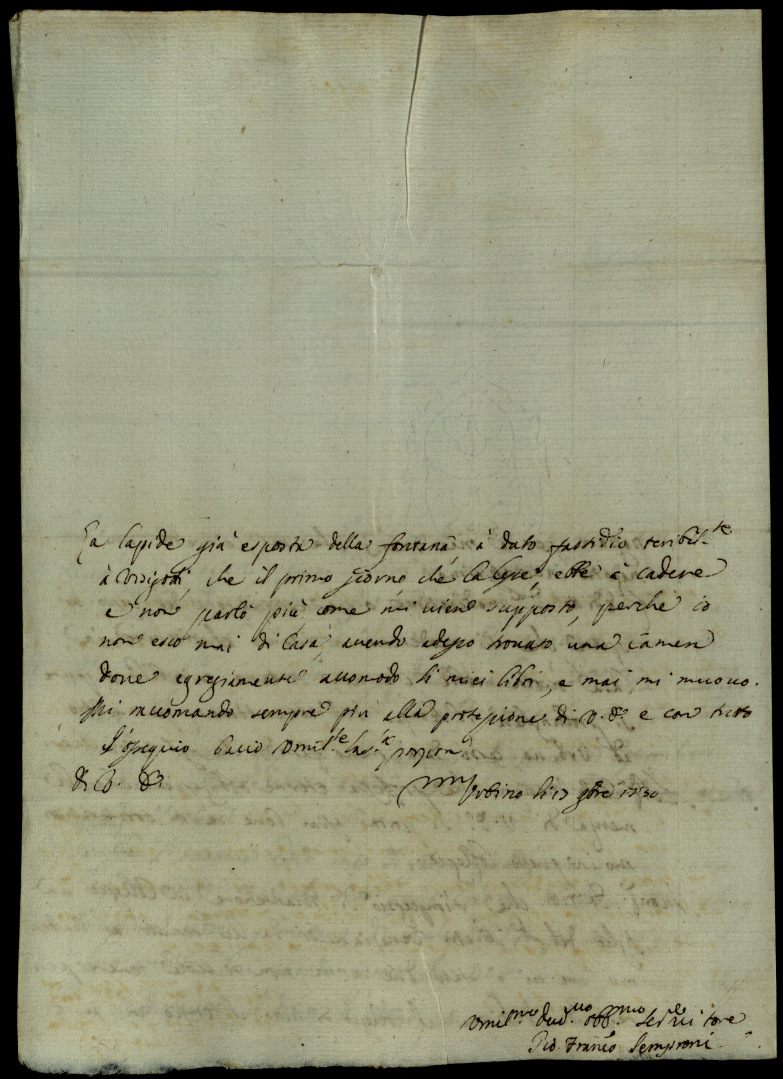 La lapide già esposta della fontana, à dato fastidio teribil.te
à che il primo giorno che la ebbe à cadere
e non parlò più, come mi vien supposto, perche io
non esco mai di Casa, avendo adesso trovato una
dove egregiamente accomodo li miei libri, e mai mi muovo.
Mi raccomando sempre piu alla protezione di V. S. e con tutto
l'ossequio bacio Umil.te la
di V. S.
Urbino li 17 9bre 1730
Umil.mo obb.mo Servitore
Gio. Franc.o Semproni